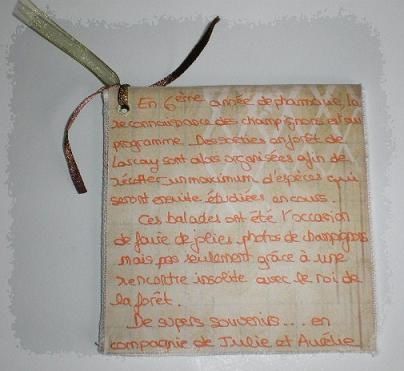 En 6ème année de pharmacie, la
reconnaissance des champignons est au
programme. Des sorties en forêt de
Larçay sont alors organisées afin de
récolter un maximum d'espèces qui
seront ensuite étudiées en cours.
Ces balades ont été l'occasion
de faire de jolies photos de champignons
mais pas seulement grâce à une
rencontre insolite avec le roi de
la forêt.
De supers souvenirs.... en
compagnie de Julie et Aurélie